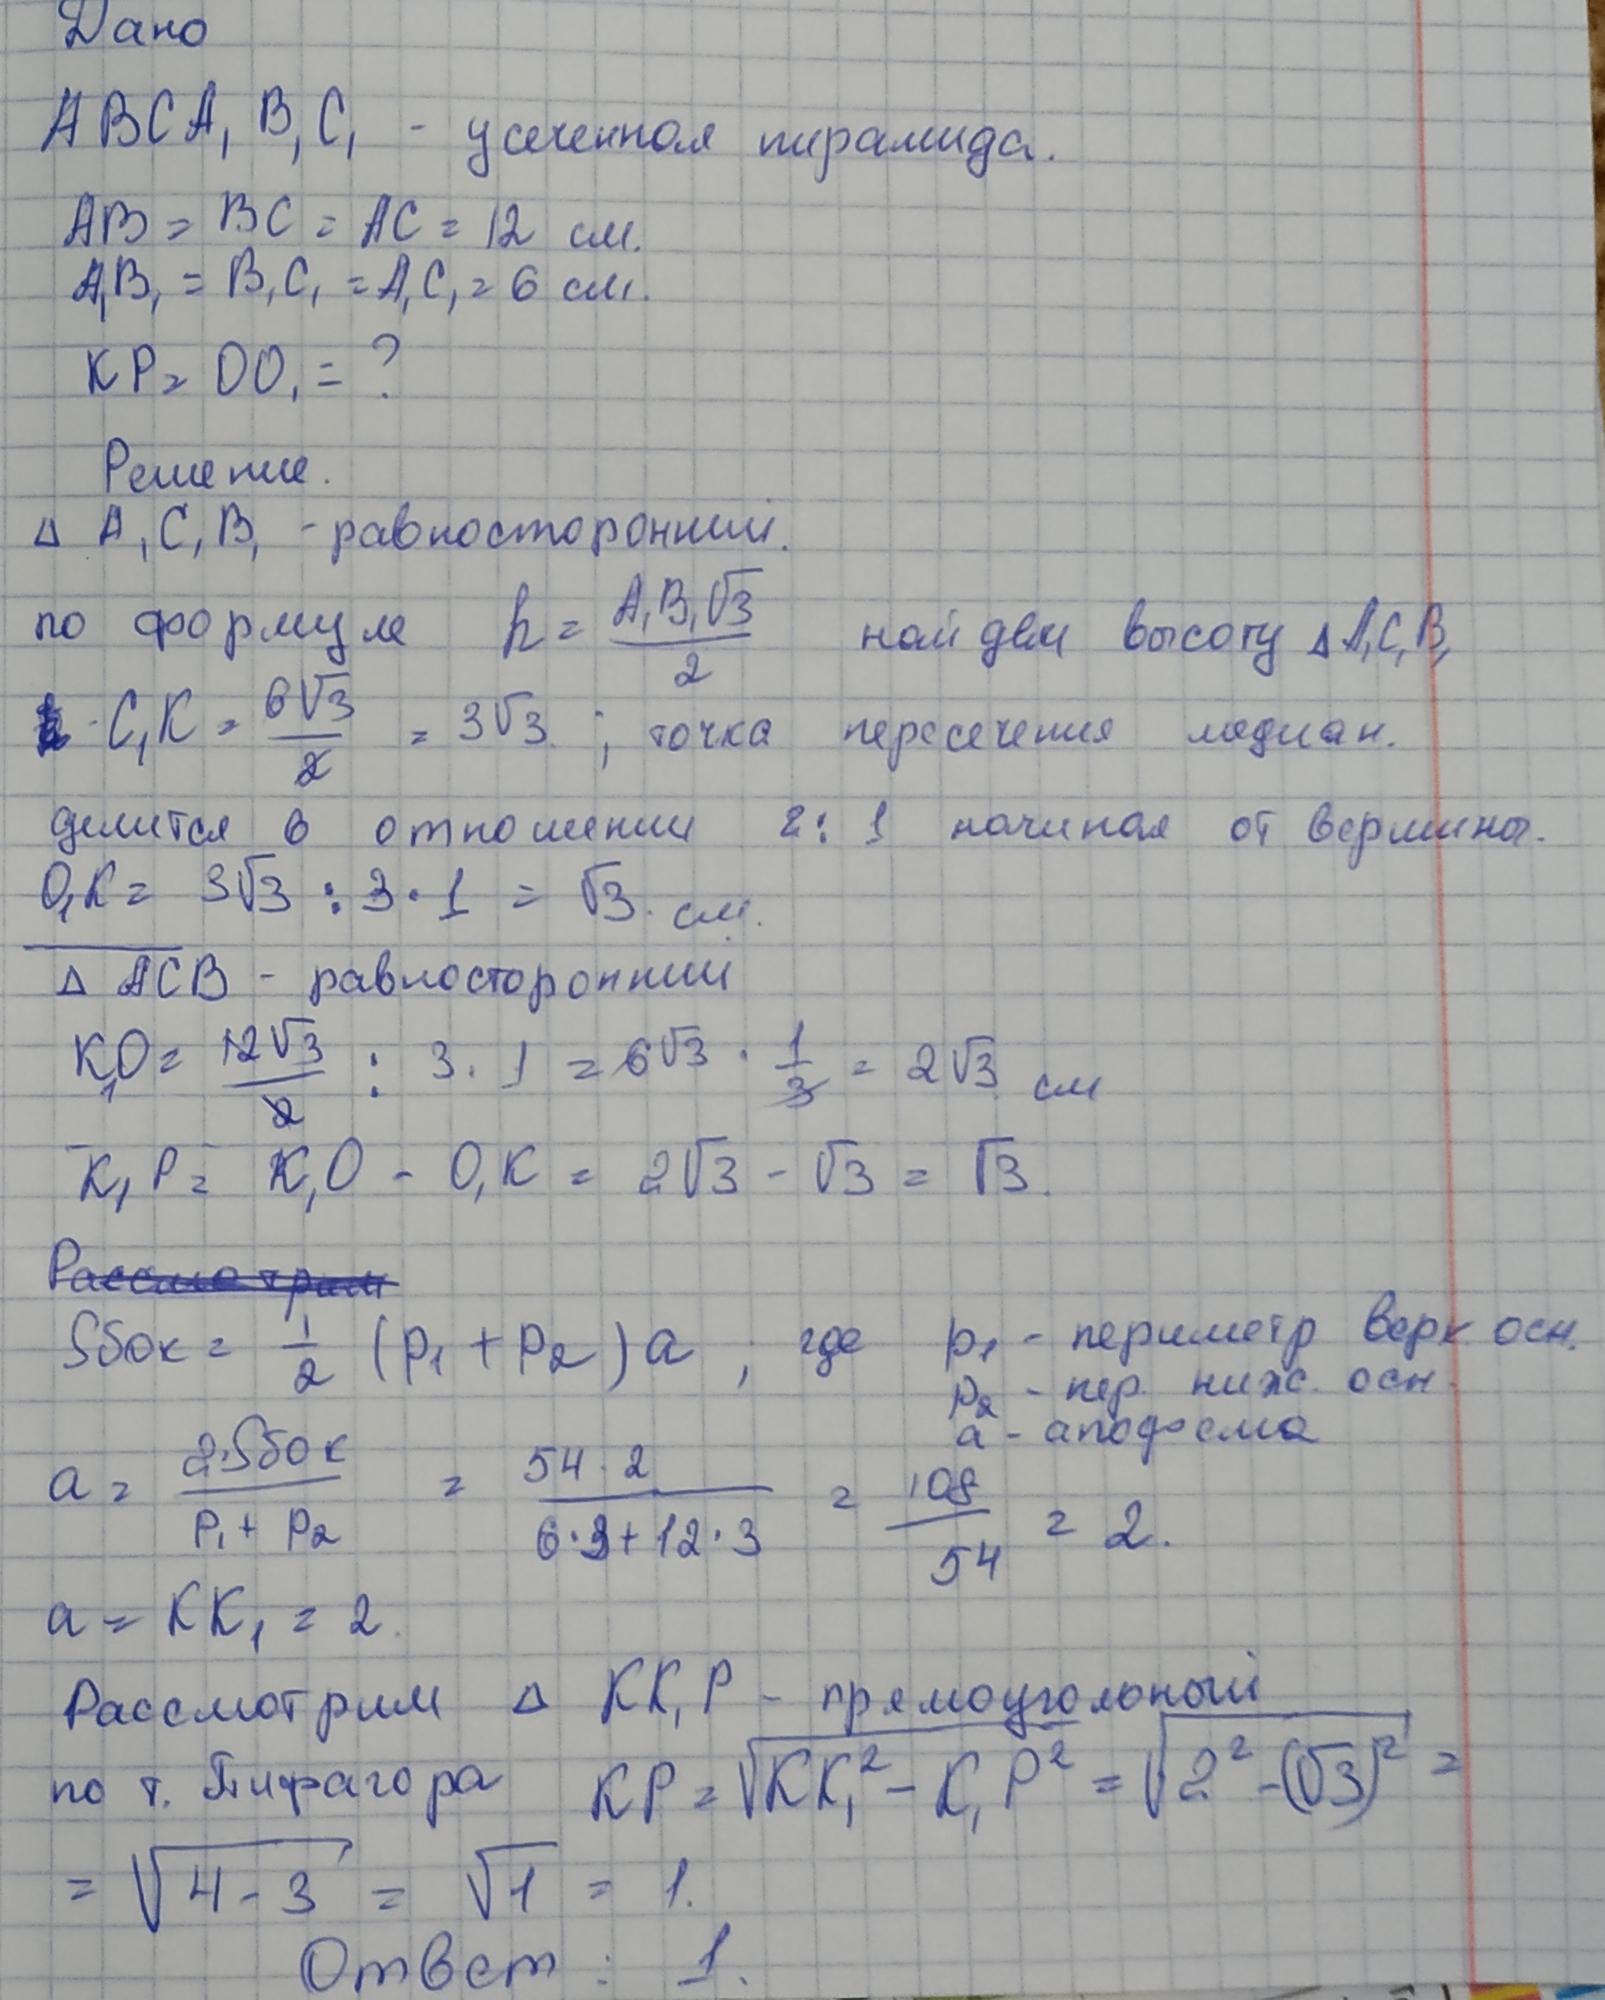 Дано
ABCA₁B₁C₁ - усеченная пирамида.
AB = BC = AC = 12 см.
A₁B₁ = B₁C₁ = A₁C₁ = 6 см.
KP = OO₁ = ?
Решение.
Δ A₁C₁B₁ - равносторонний.
по формуле h = A₁B₁√3 / 2 найдем высоту Δ A₁C₁B₁
C₁K = 6√3 / 2 = 3√3 ; точка пересечения медиан.
делится в отношении 2:1 начиная от вершины.
O₁K = 3√3 : 3 · 1 = √3 см.
Δ ACB - равносторонний
K₁O = 12√3 / 2 : 3 · 1 = 6√3 · 1/3 = 2√3 см
K₁P = K₁O - O₁K = 2√3 - √3 = √3.
Рассмотрим
Sбок = 1/2 (p₁ + p₂) a ; где p₁ - периметр верх осн.
p₂ - пер. ниж. осн.
a - апофема
a = 2·Sбок / p₁ + p₂ = 54 · 2 / 6·3 + 12·3 = 108 / 54 = 2.
a = KK₁ = 2.
Рассмотрим Δ KK₁P - прямоугольный
по т. Пифагора KP = √KK₁² - K₁P² = √2² - (√3)² =
= √4 - 3 = √1 = 1.
Ответ : 1.